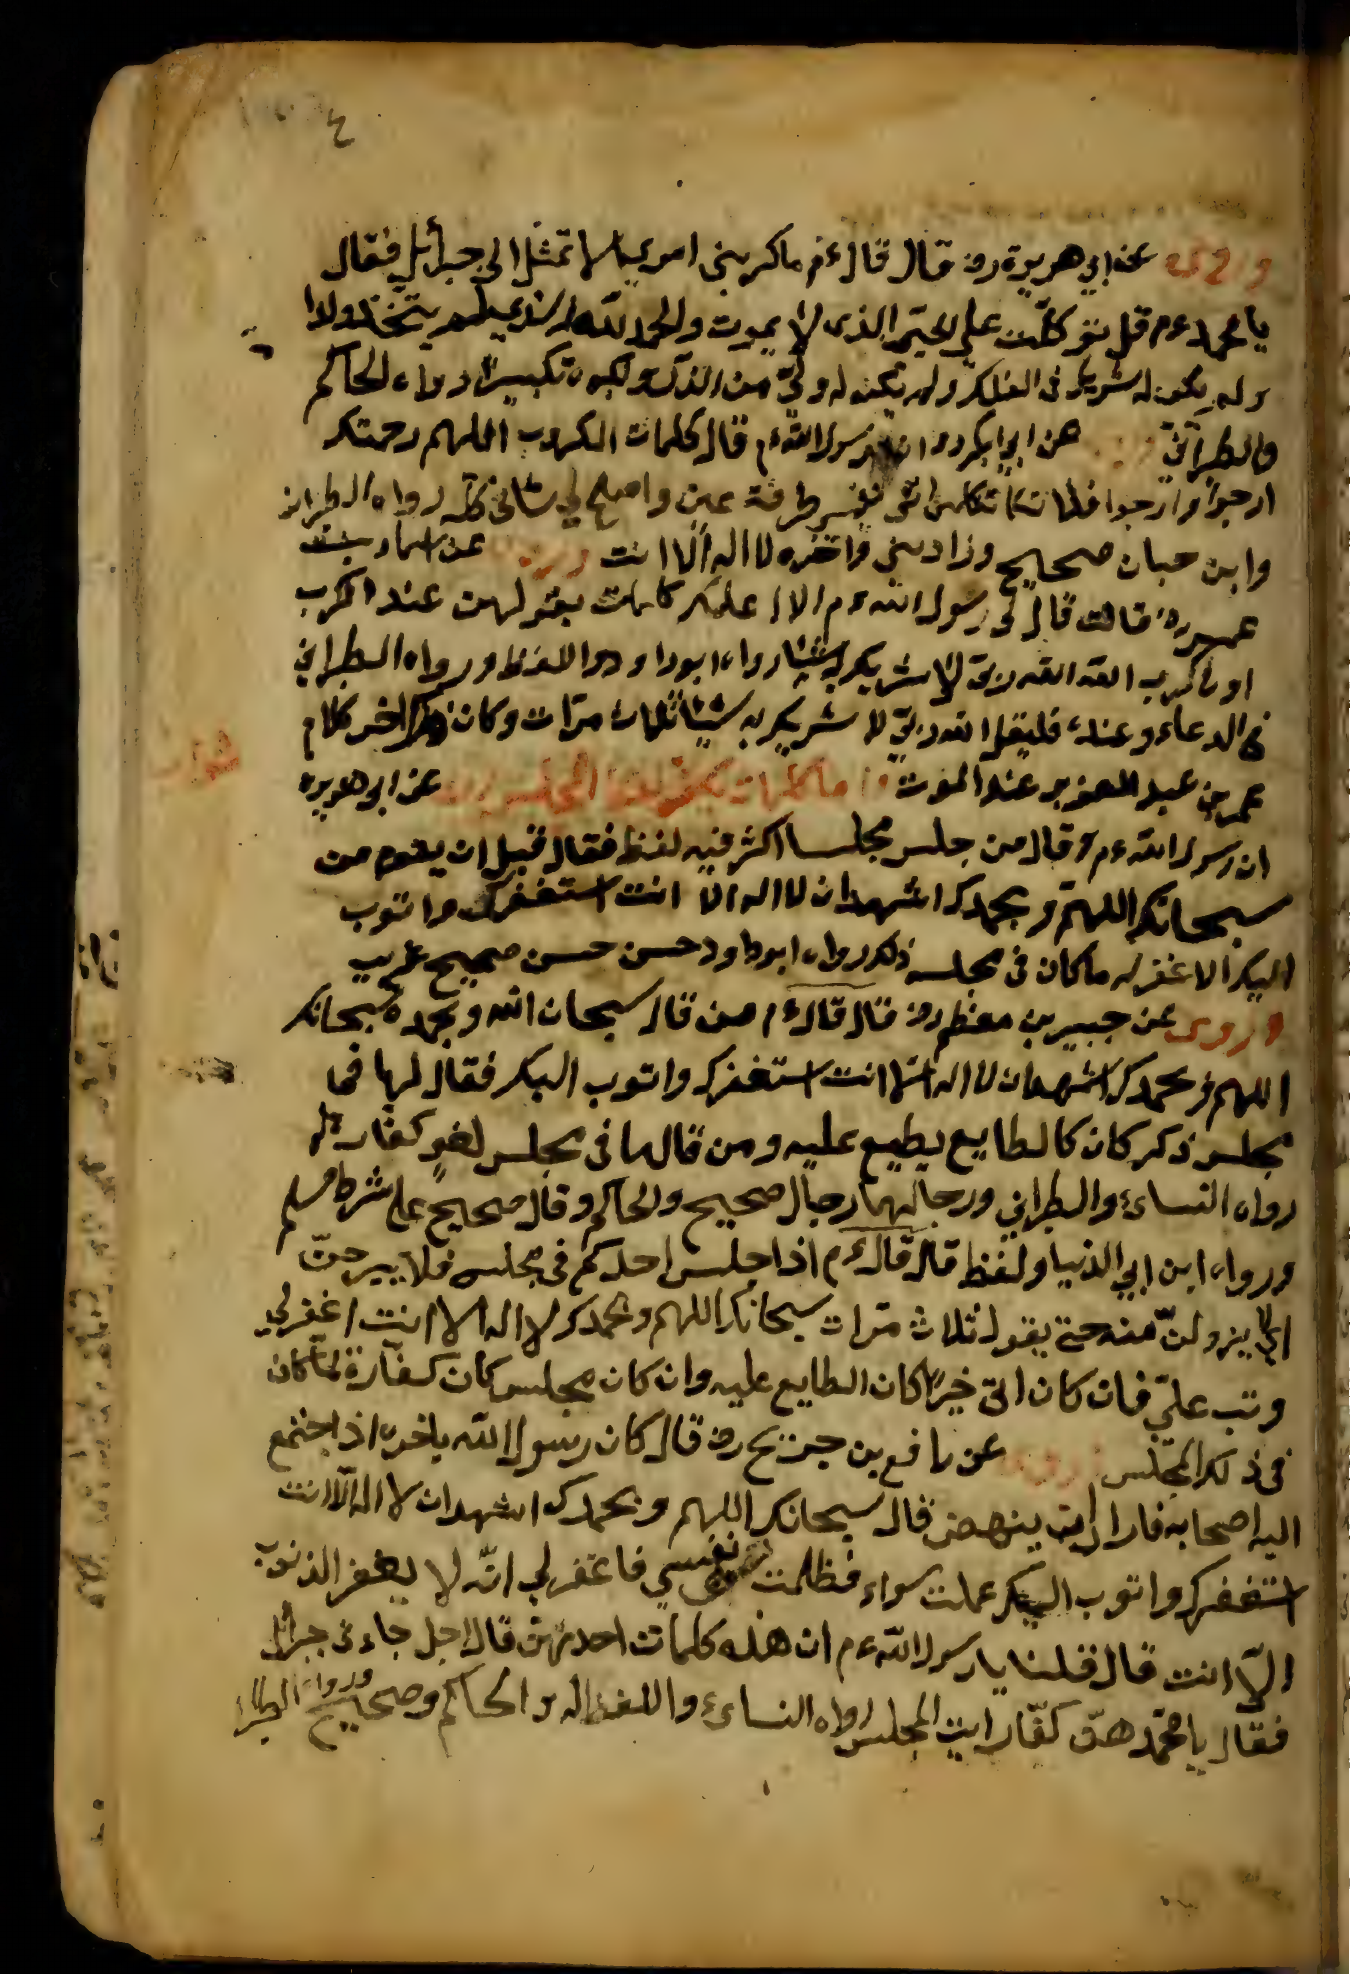 ٤
وروى عن ابي هريرة رض قال قال ءم ما كربنى امر الا تمثل الى جبرأيل فقال
يا محمد ءم قل توكلت على الحى الذى لا يموت والحمد لله الذى لم يتخذ ولدا
ولم يكن له شريك فى الملك ولم يكن له ولى من الذل وكبره تكبيرا رواه الحاكم
والطبرانى عن ابى بكر رض ان رسول الله ءم قال كلمات الكروب اللهم رحمتك
ارجوا فلا تكلنى الى نفسى طرفة عين واصلح لى شانى كله رواه الطبرانى
وابن حبان صحيح وزاد سنى واخره لا اله الا انت وروى عن اسماء بنت
عميس رض قالت قال لى رسول الله ءم الا اعلمك كلمات يقولهن عند الكرب
او فى كرب الله الله ربى لا شريك به شيئا رواه ابو داود واللفظ ورواه الطبرانى
فى الدعاء وعنده فليقل الله ربى لا شريك به شيئا ثلاث مرات وكان اخر كلام
عمر بن عبد العزيز عند الموت واما كلمات يكفر لغط المجلس عن ابى هريرة
ان رسول الله ءم قال من جلس مجلسا اكثر فيه لفظ فقال قبل ان يقوم من
سبحانك اللهم وبحمدك اشهد ان لا اله الا انت استغفرك واتوب
اليك الا غفر له ما كان فى مجلسه ذلك رواه ابو داود حسن حسن صحيح غريب
وروى عن جبير بن مطعم رض قال قال ءم من قال سبحان الله وبحمده سبحانك
اللهم وبحمدك اشهد ان لا اله الا انت استغفرك واتوب اليك فقال لها فى
مجلس ذكر كان كالطايع يطيع عليه ومن قالها فى مجلس لغو كفارة له
رواه النساءى والطبرانى ورجالهما رجال صحيح والحاكم وقال صحيح على شرط مسلم
ورواه ابن ابى الدنيا ولفظ قال قال ءم اذا جلس احدكم فى مجلس فلا يبرحن
اى لا يزولن منه حتى يقول ثلاث مرات سبحانك اللهم وبحمدك لا اله الا انت اغفر لى
وتب على فان كان اتى خيرا كان الطايع عليه وان كان مجلس كان كفارة لما كان
فى ذلك المجلس وروى عن رافع بن خديج رض قال كان رسول الله باخره اذا اجتمع
اليه اصحابه فاراد ان ينهض قال سبحانك اللهم وبحمدك اشهد ان لا اله الا انت
استغفرك واتوب اليك عملت سواء فظلمت نفسى فاغفر لى انه لا يغفر الذنوب
الا انت قال قلنا يا رسول الله ءم ان هذه كلمات احدثتهن قال اجل جاءنى جبرأيل
فقال يا محمد هن كفارات المجلس رواه النساءى واللفظ له والحاكم وصحيح ورواه الطبرا